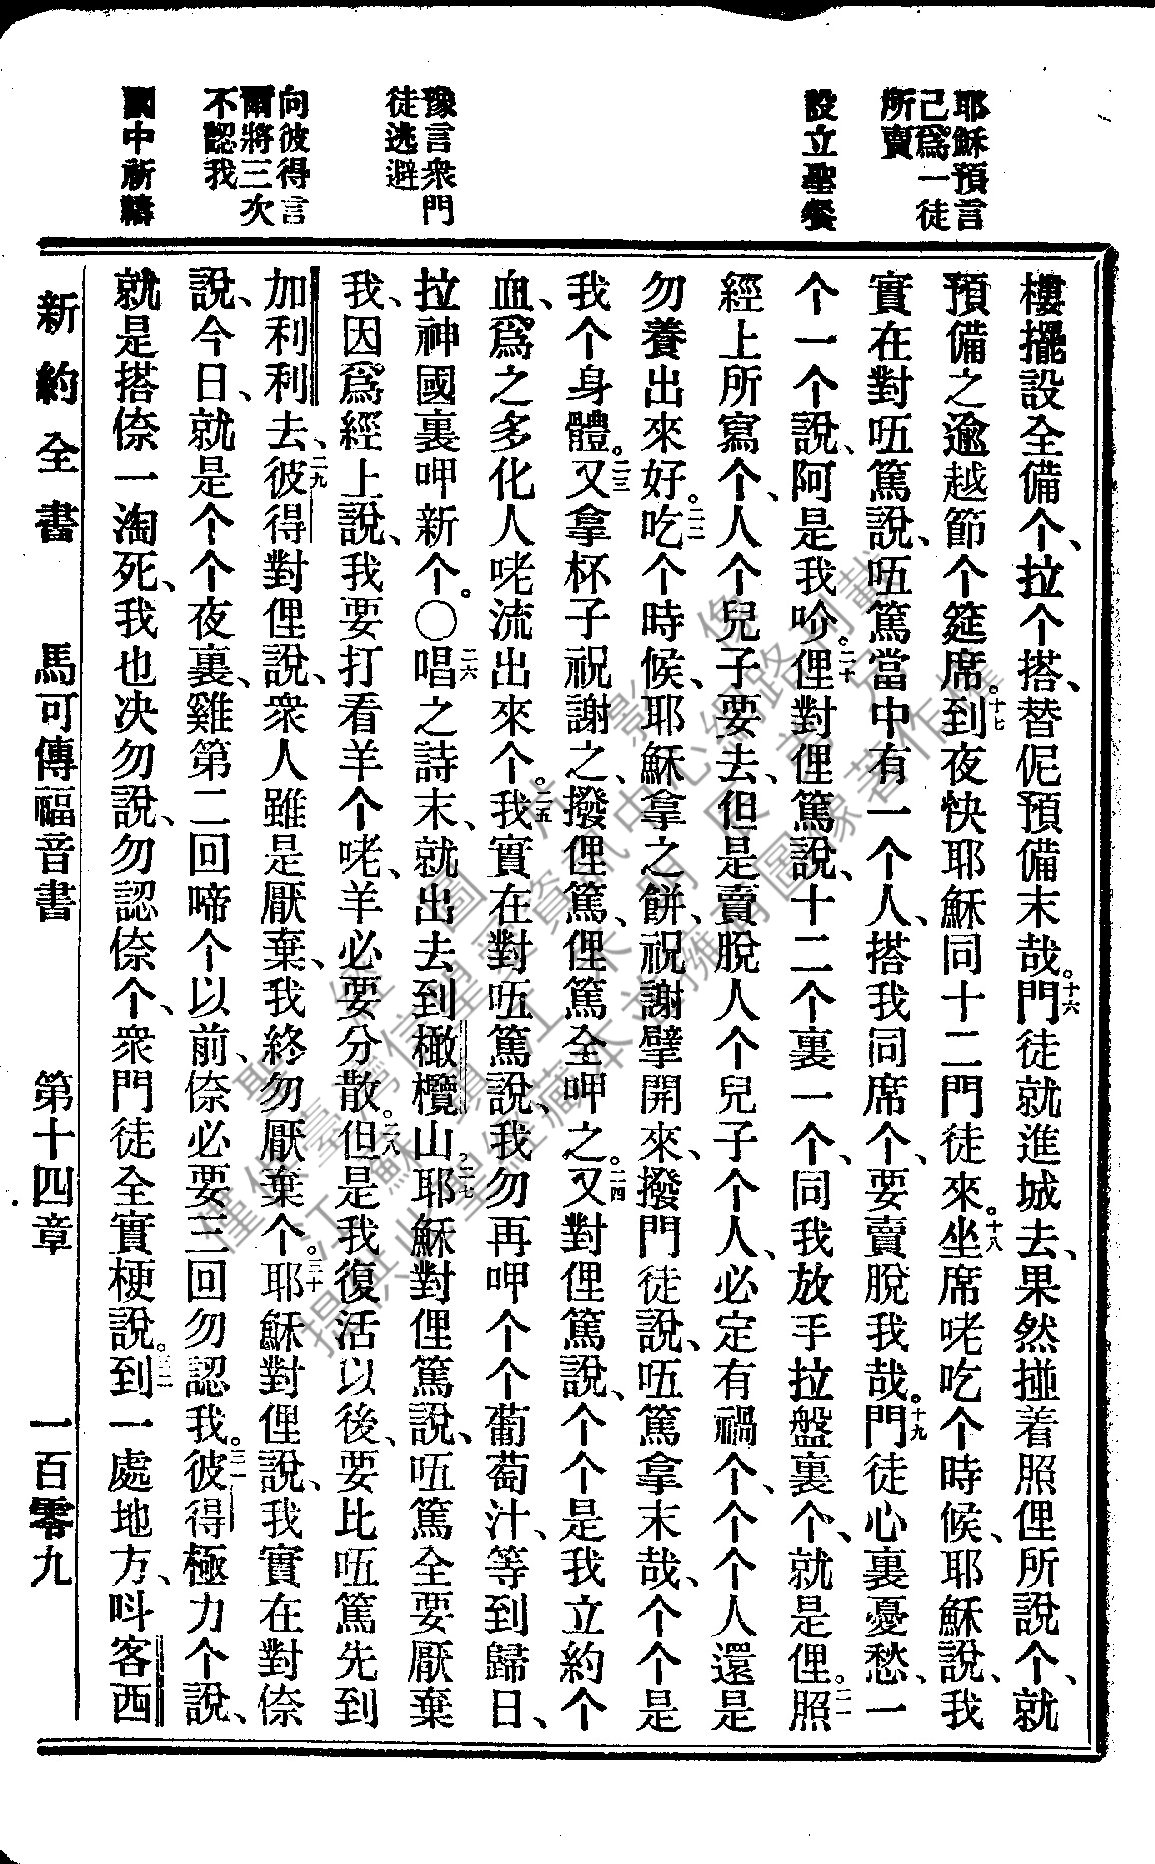 耶穌預言
己爲一徒
所賣
設立聖餐
豫言衆門
徒逃避
向彼得言
爾將三次
不認我
園中祈禱
樓擺設全備个、拉个搭、替伲預備末哉。十六門徒就進城去、果然掽着照俚所說个、就
預備之逾越節个筵席。十七到夜快耶穌同十二門徒來。十八坐席咾吃个時候、耶穌說、我
實在對㕶篤說、㕶篤當中有一个人、搭我同席个、要賣脫我哉。十九門徒心裏憂愁、一
个一个說、阿是我吤。二十俚對俚篤說、十二个裏一个、同我放手拉盤裏个、就是俚。二一照
經上所寫个、人个兒子要去、但是賣脫人个兒子个人、必定有禍个、个个人還是
勿養出來好。二二吃个時候、耶穌拿之餅、祝謝擘開來、撥門徒說、㕶篤拿末哉、个个是
我个身體。二三又拿杯子祝謝之、撥俚篤、俚篤全呷之。二四又對俚篤說、个个是我立約个
血、爲之多化人咾流出來个。二五我實在對㕶篤說、我勿再呷个个葡萄汁、等到歸日、
拉神國裏呷新个。〇二六唱之詩末、就出去到橄欖山。二七耶穌對俚篤說、㕶篤全要厭棄
我、因爲經上說、我要打看羊个咾、羊必要分散。二八但是我復活以後、要比㕶篤先到
加利利去、二九彼得對俚說、衆人雖是厭棄、我終勿厭棄个。三十耶穌對俚說、我實在對倷
說、今日、就是个个夜裏、雞第二回啼个以前、倷必要三回勿認我。三一彼得極力个說、
就是搭倷一淘死、我也决勿說、勿認倷个、衆門徒全實梗說。三二到一處地方、呌客西
新約全書　馬可傳福音書　第十四章　一百零九
聖經圖片影像
僅供臺灣信望愛資訊中心網路刊載